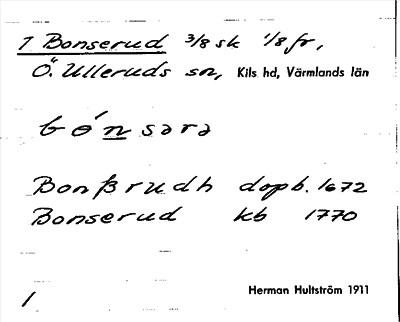 1 Bonserud 3/8 sk 1/8 fr,
Ö. Ulleruds sn, Kils hd, Värmlands län
bo´nsərə
Bonßrudh dopb. 1672
Bonserud kb 1770
Herman Hultström 1911
1